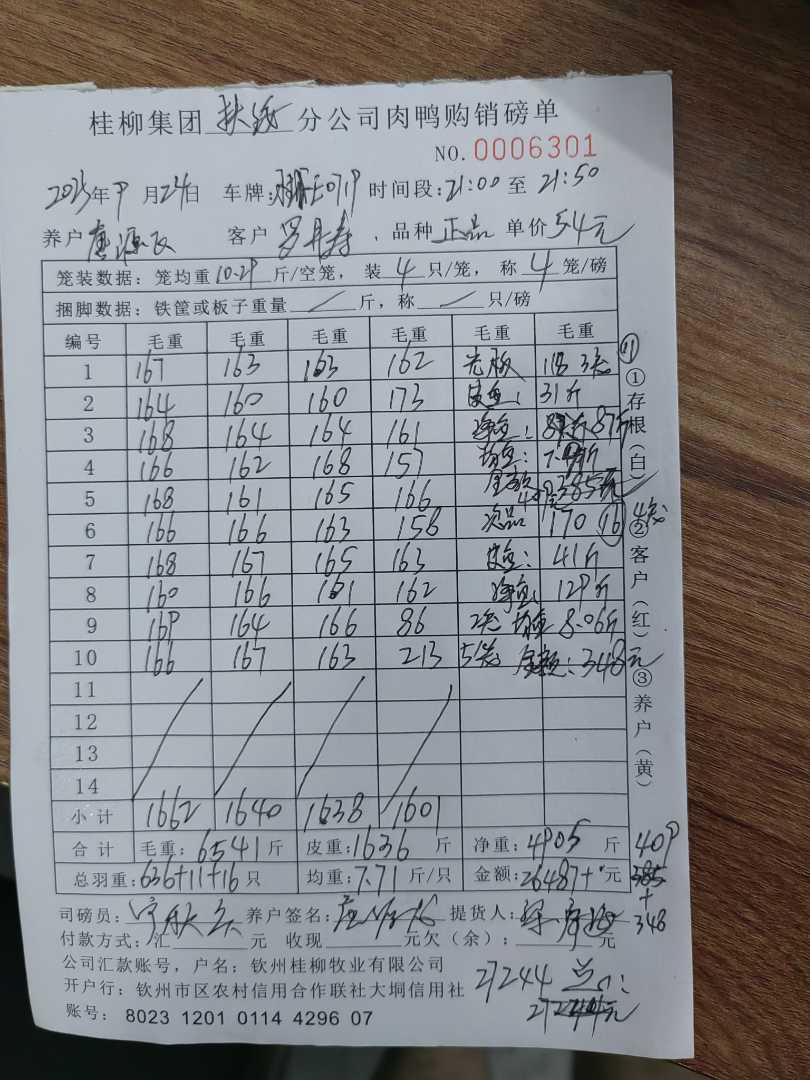 桂柳集团扶绥分公司肉鸭购销磅单
NO.0006301
2023年9月24日 车牌: 时间段:21:00至21:50
养户唐源 客户罗 寿、品种正品 单价5.4元
笼装数据:笼均重10.29斤/空笼,装4只/笼,称4笼/磅
捆脚数据:铁筐或板子重量/斤,称/只/磅
编号 毛重 毛重 毛重 毛重 毛重 毛重
1 167 163 163 162 118 3笼 11
2 164 160 160 173 皮重: 31斤
3 168 164 164 161 净重: 87斤
4 166 162 168 157 均重: 斤
5 168 161 165 166 金额
6 166 166 163 156 次品 170 16 4笼
7 168 167 165 163 皮重: 41斤
8 160 166 161 162 净重: 129斤
9 169 164 166 86 2笼 均重 8.06斤
10 166 167 163 213 5笼 金额:348元
11
12
13
14
小计 1662 1640 1638 1601
合计 毛重:6541斤 皮重:1636斤 净重:4905斤 409
总羽重:636+11+16只 均重:7.71斤/只 金额:26487+元
+
348
司磅员: 养户签名: 提货人:
付款方式:汇 元 收现 元欠(余): 元
公司汇款账号,户名:钦州桂柳牧业有限公司
27244 总:
开户行:钦州市区农村信用合作联社大垌信用社
账号:8023 1201 0114 4296 07
①存根(白)②客户(红)③养户(黄)